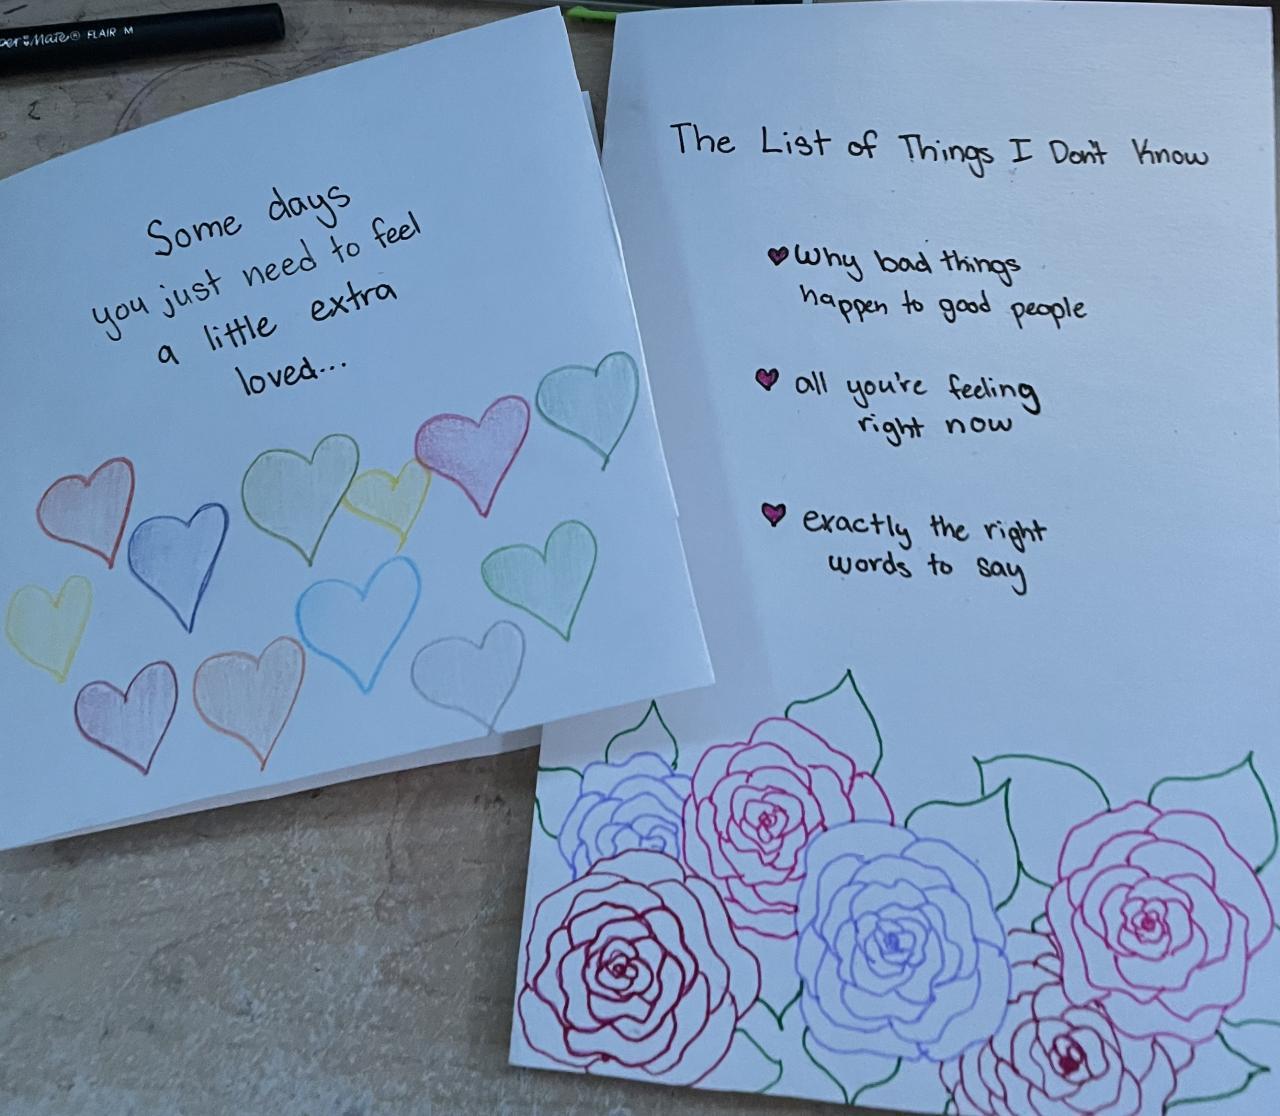 per:Mate® FLAIR M
Some days
you just need to feel
a little extra
loved...
The List of Things I Don't Know
Why bad things
happen to good people
all you're feeling
right now
exactly the right
words to say